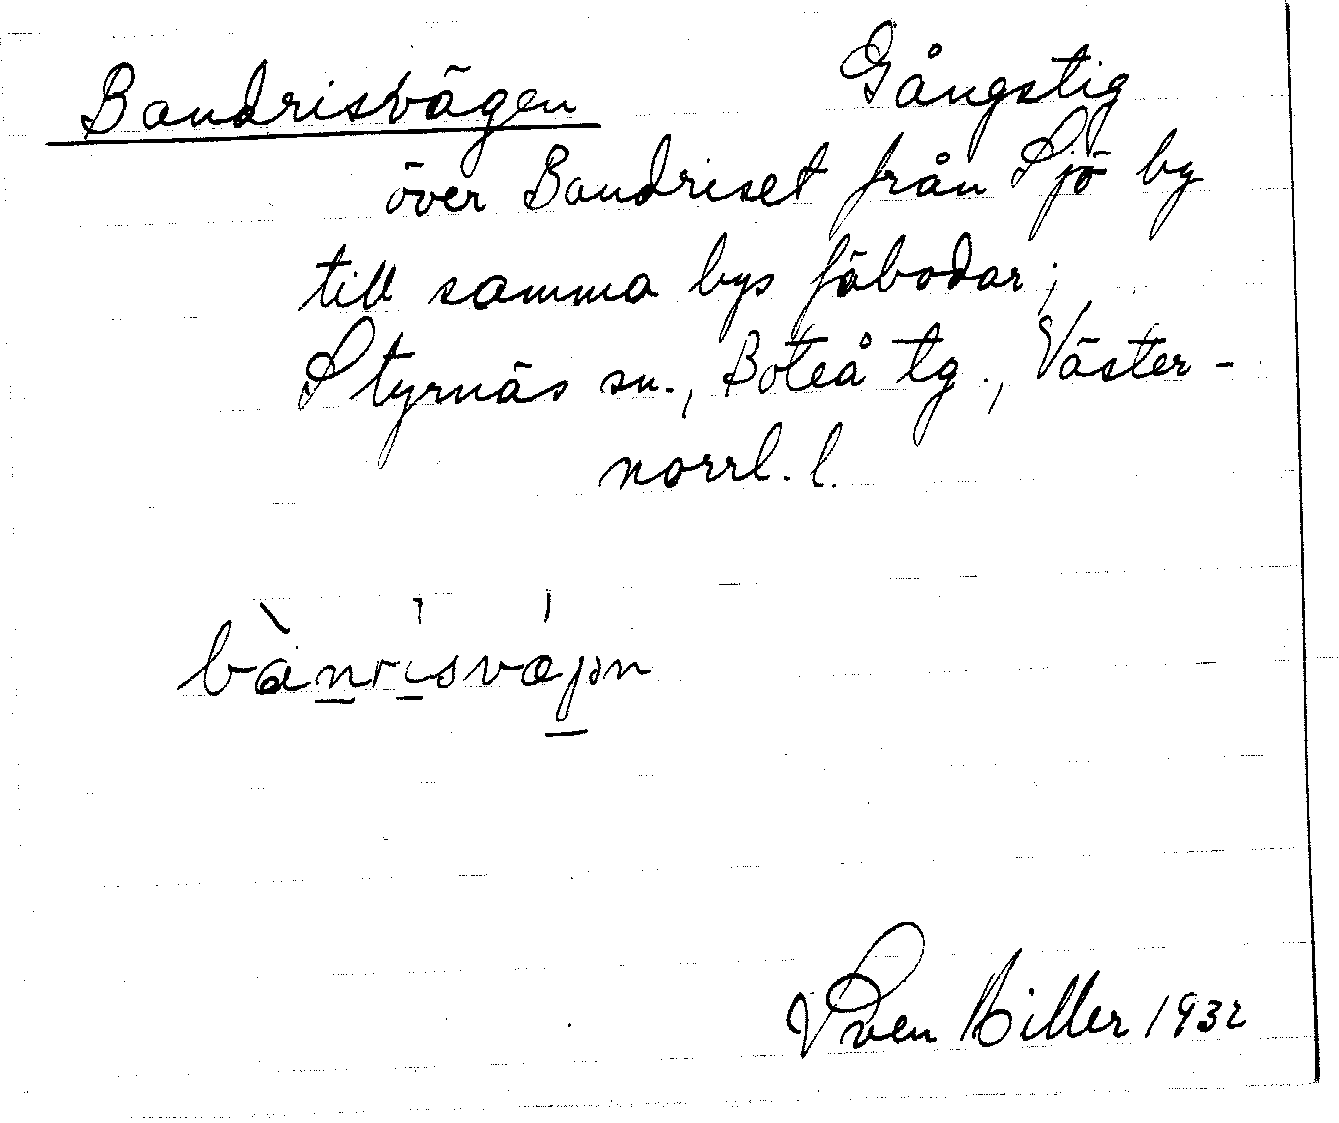 Bandrisvägen Gångstig
över Bandriset från Sjö by
till samma bys fäbodar;
Styrnäs sn., Boteå tg., Väster-
norrl. l.
Sven Hiller 1932